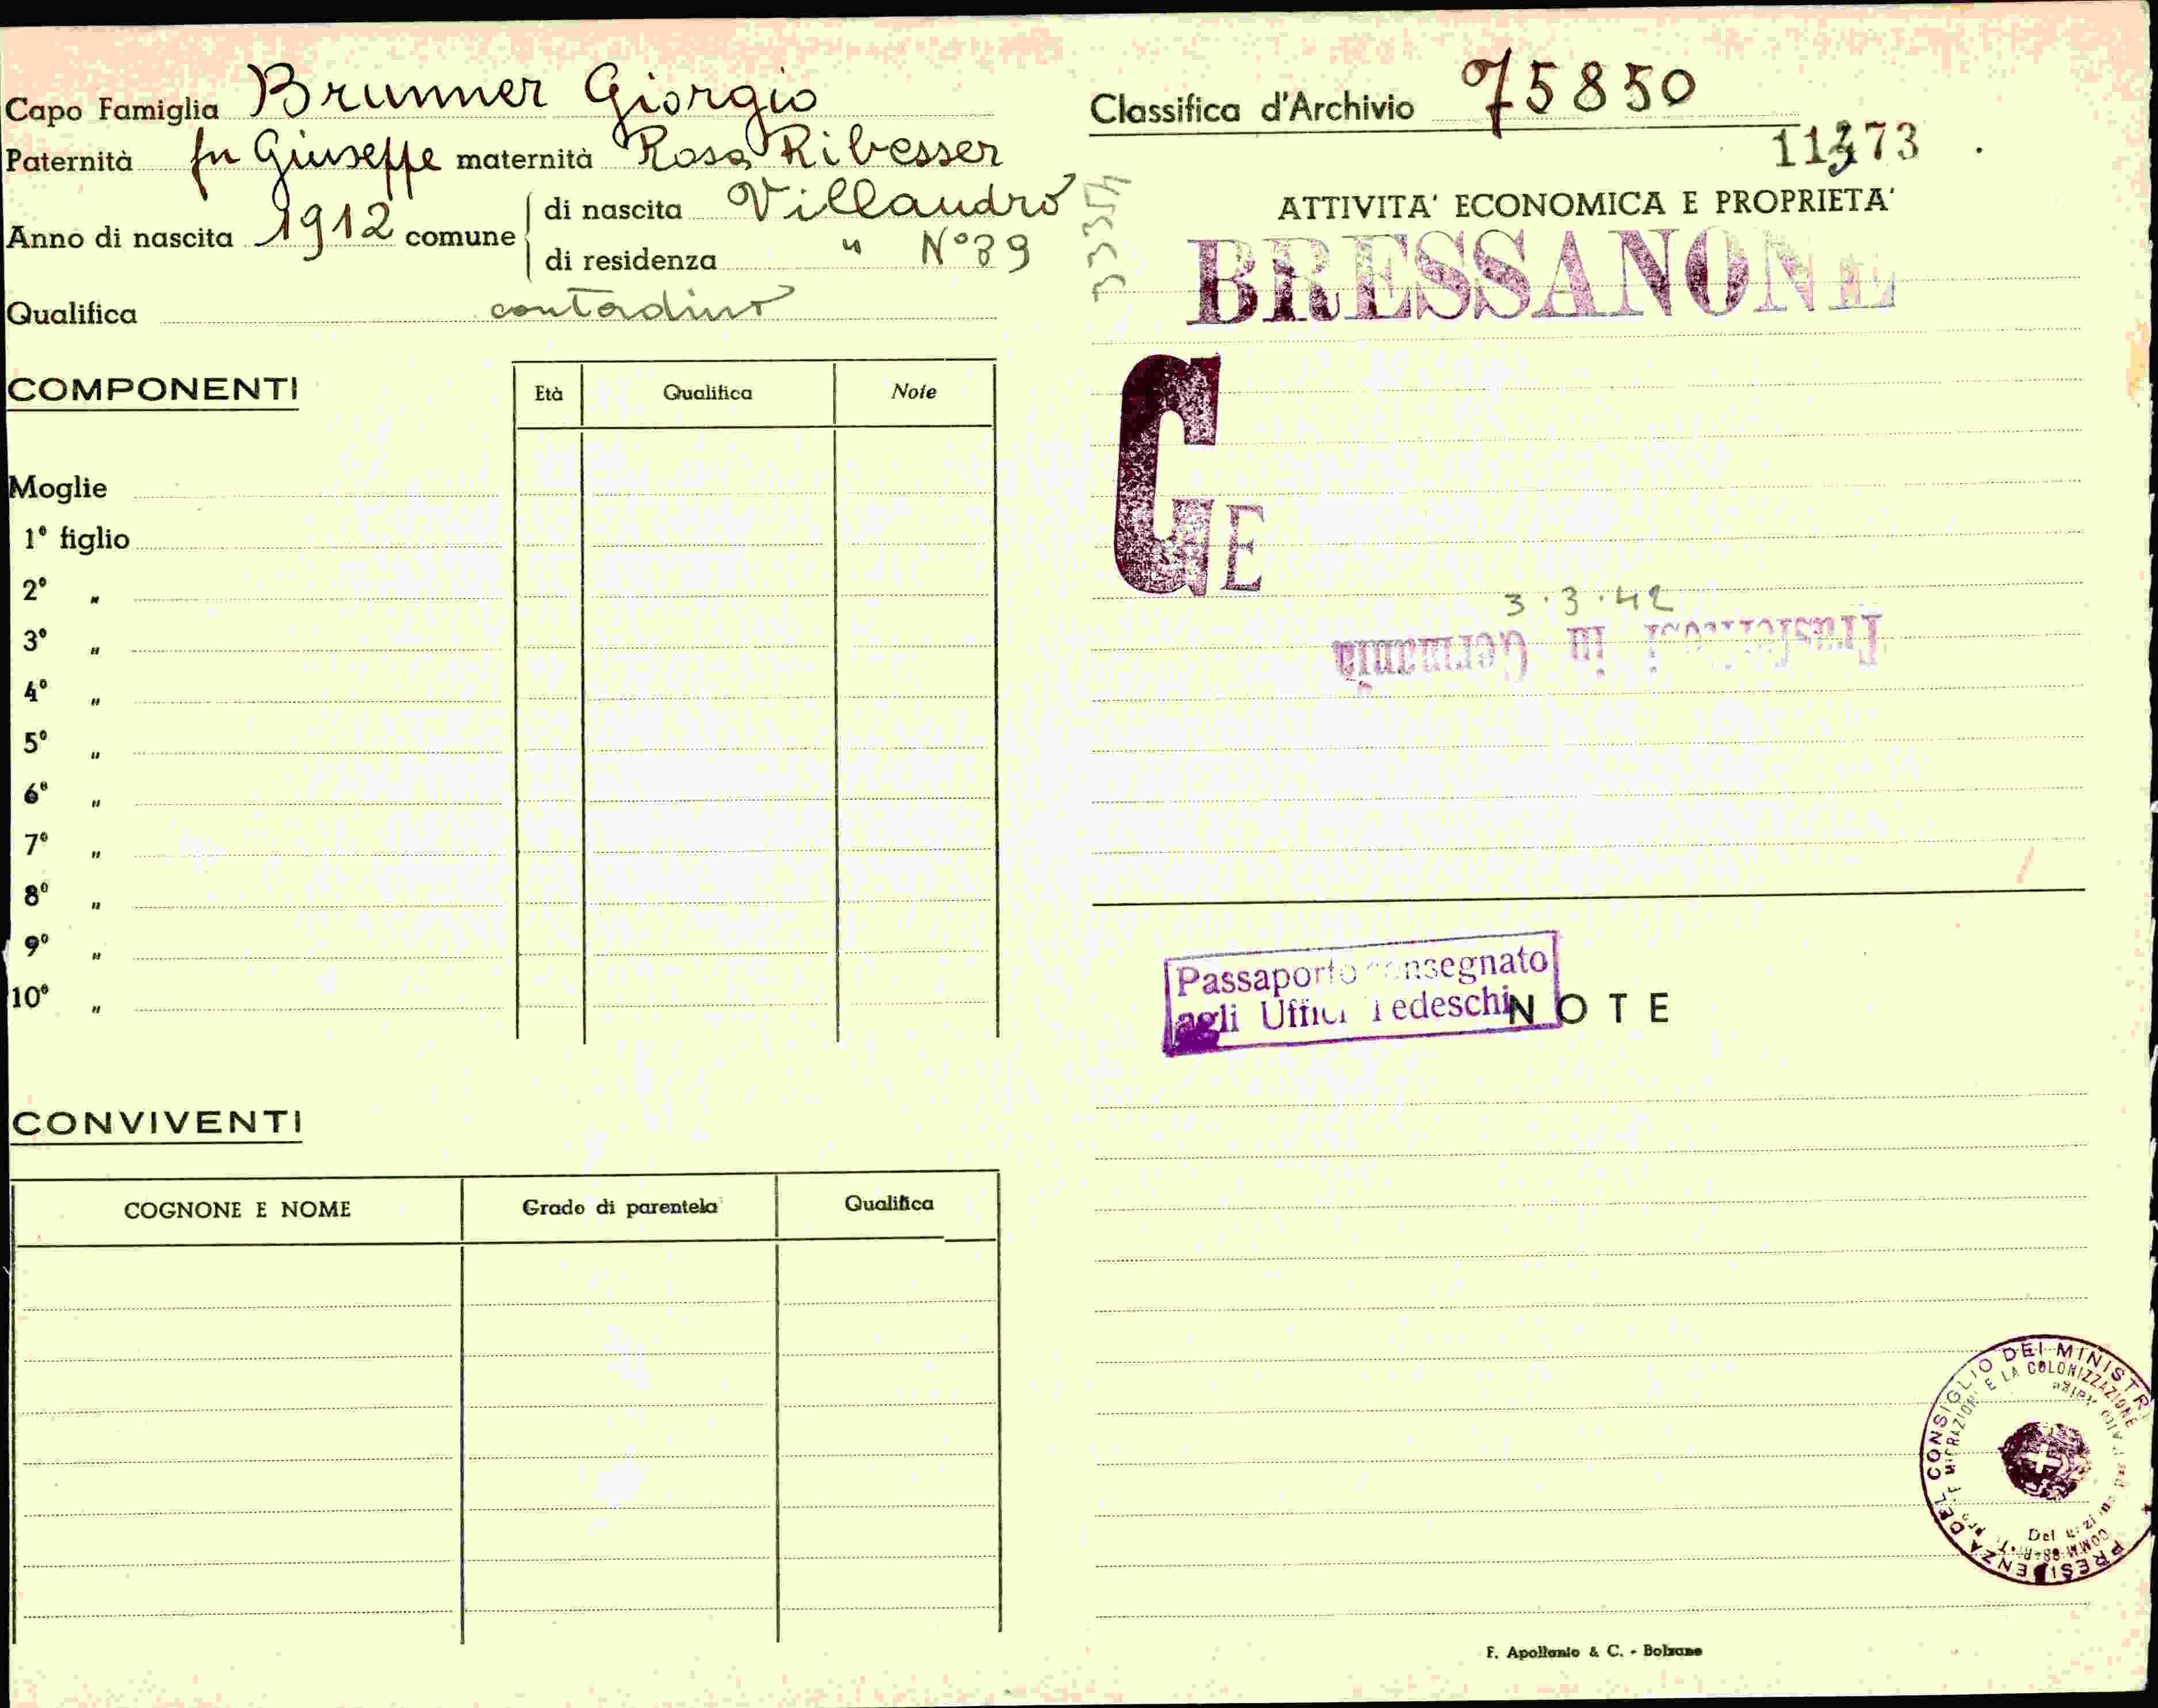 Capo Famiglia Brunner Giorgio
Paternità fu Giuseppe maternità Rosa Ribesser
Anno di nascita 1912 comune di nascita Villandro
di residenza " N° 89
Qualifica contadino
COMPONENTI
Età Qualifica Note
Moglie
1° figlio
2° "
3° "
4° "
5° "
6° "
7° "
8° "
9° "
10° "
CONVIVENTI
COGNONE E NOME Grado di parentela Qualifica
Classifica d'Archivio 75850
11373
ATTIVITA' ECONOMICA E PROPRIETA'
BRESSANONE
G E
3.3.42
Trasferitosi in Germania
Passaporto consegnato
agli Uffici Tedeschi
NOTE
PRESIDENZA DEL CONSIGLIO DEI MINISTRI
E LA COLONIZZAZIONE
F. Apollonio & C. - Bolzano